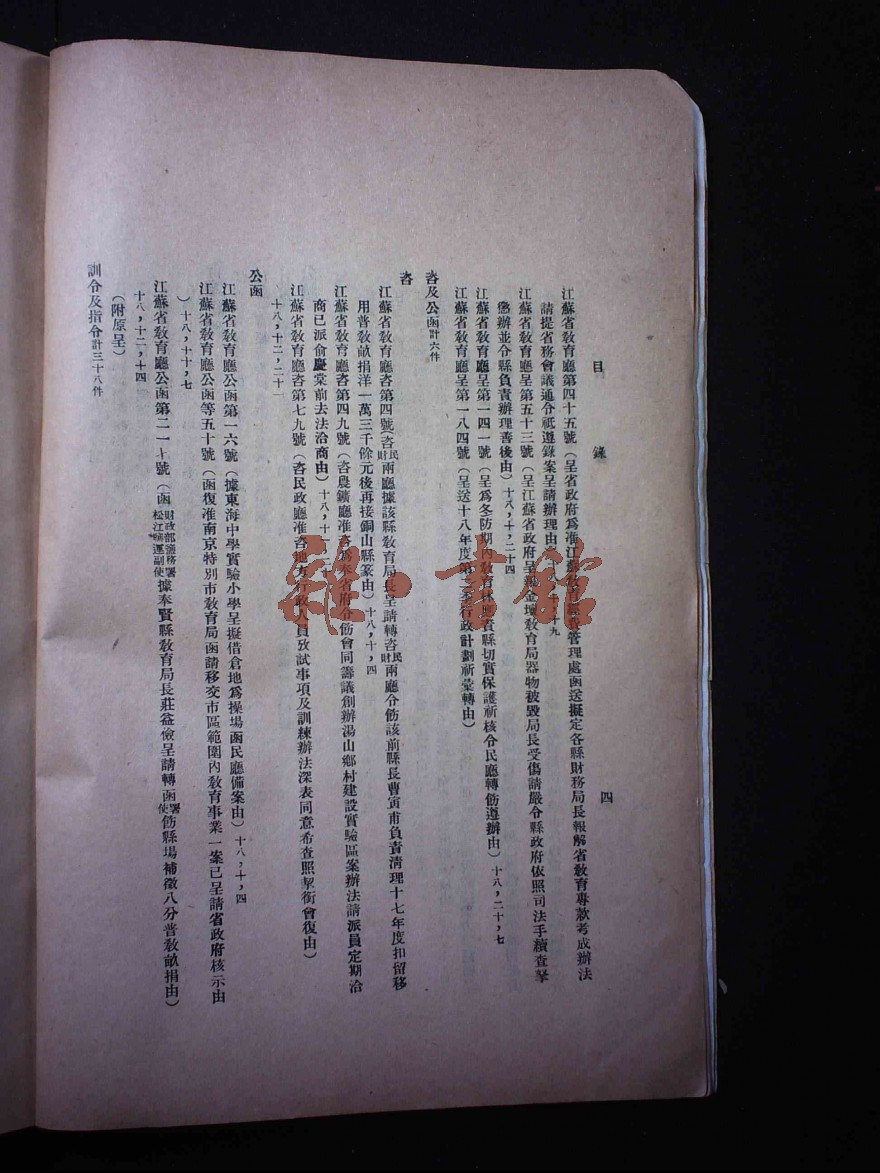 目錄
四
江蘇省教育廳第四十五號（呈省政府爲准江蘇教育經費管理處函送擬定各縣財務局長報解省教育專款考成辦法
請提省務會議通令祇遵錄案呈請辦理由）十九
江蘇省教育廳呈第五十三號（呈江蘇省政府呈報金壇教育局器物被毀局長受傷請嚴令縣政府依照司法手續查拏
懲辦並令縣負責辦理善後由）十八，十，二十四
江蘇省教育廳呈第一四一號（呈爲冬防期內教育林應責縣切實保護祈核令民廳轉飭遵辦由）十八，二十，七
江蘇省教育廳呈第一八四號（呈送十八年度第三行政計劃祈彙轉由）
咨及公函計六件
咨
江蘇省教育廳咨第四號（咨民財兩廳據該縣教育局長呈請轉咨民財兩廳令飭該前縣長曹寅甫負責清理十七年度扣留移
用普教畝捐洋一萬三千餘元後再接銅山縣篆由）十八，十，四
江蘇省教育廳咨第四九號（咨農鑛廳准咨爲奉省府令飭會同籌議創辦湯山鄉村建設實驗區案辦法請派員定期洽
商已派俞慶棠前去法洽商由）十八，十一，二十
江蘇省教育廳咨第七九號（咨民政廳准咨地方行政人員攷試事項及訓練辦法深表同意希查照挈銜會復由）
十八，十二，二十一
公函
江蘇省教育廳公函第一六號（據東海中學實驗小學呈擬借倉地爲操場函民廳備案由）十八，十，四
江蘇省教育廳公函等五十號（函復准南京特別市教育局函請移交市區範圍內教育事業一案已呈請省政府核示由
）十八，十十，七
江蘇省教育廳公函第二一十號（函財政部鹽務署松江鹽運副使據奉賢縣教育局長莊益儉呈請轉函署使飭縣場補徵八分普教畝捐由）
十八，十二，十四
（附原呈）
訓令及指令計三十八件
雜·書館